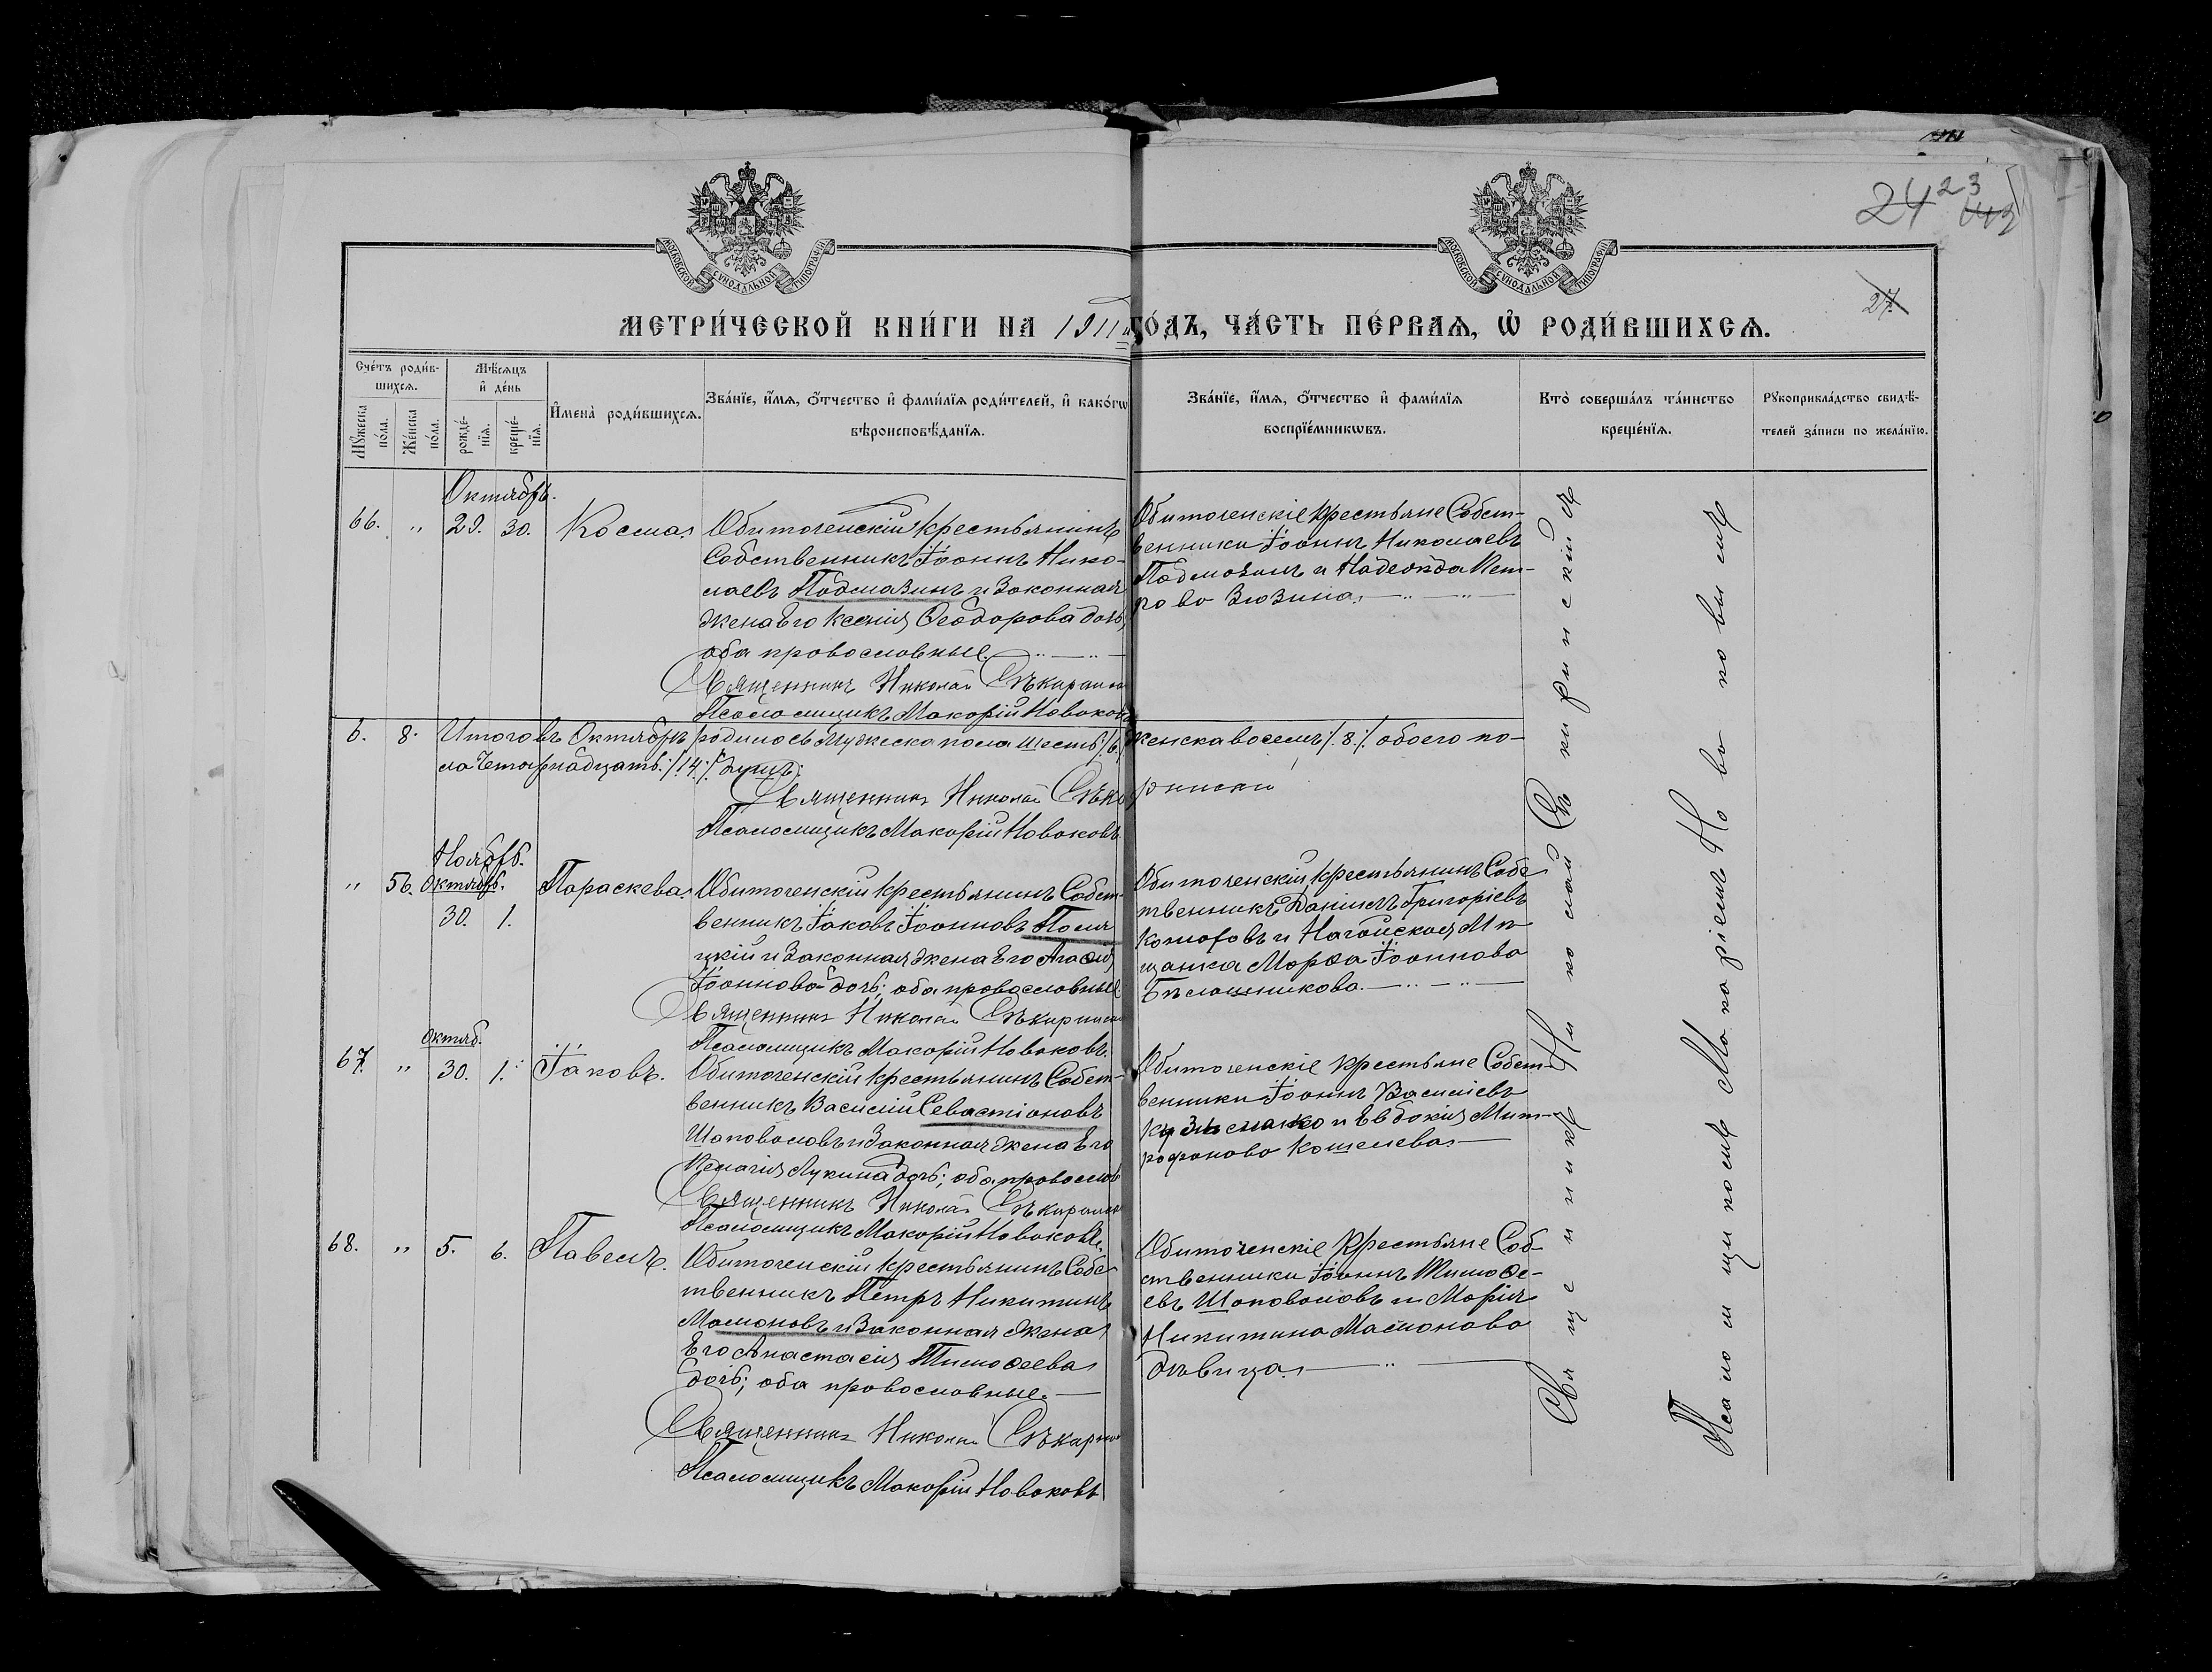 24 23
27.
МОСКОВСКОЙ СУНОДАЛЬНОЙ ТИПОГРАФІИ
МОСКОВСКОЙ СУНОДАЛЬНОЙ ТИПОГРАФІИ
МЕТРИ́ЧЕСКОЙ КНИ́ГИ НА 1911й ГО́ДЪ, ЧА́СТЬ ПЕ́РВАѦ, Ѽ РОДИ́ВШИХСѦ.
Сче́тъ роди́в-
шихсѧ.
Мꙋ́жеска по́ла.
Же́нска по́ла.
Мѣ́сѧцъ
и҆ де́нь
рожде́-нїѧ.
креще́-нїѧ.
И҆мена̀ роди́вшихсѧ.
Зва́нїе, и҆́мѧ, ѻ҆́тчество и҆ фами́лїѧ роди́телей, и҆ како́гѡ
вѣроисповѣ́данїѧ.
Зва́нїе, и҆́мѧ, ѻ҆́тчество и҆ фами́лїѧ
воспрїе́мникѡвъ.
Кто̀ соверша́лъ та́инство
креще́нїѧ.
Рꙋкоприкла́дство свидѣ́-
телей за́писи по жела́нїю.
Октябрь.
66. " 29. 30. Косма
Обиточенскій крестьянинъ
Собственникъ Іоаннъ Нико-
лаевъ Подмазинъ и Законная
жена Его Ксенія Ѳеодорова дочь,
оба православные.
Священникъ Николай
Псаломщикъ Макарій Новаковъ
Обиточенскіе крестьяне Собст-
венники Іоаннъ Николаевъ
Подмазинъ и Надежда Пет-
рова Зюзина.
6. 8. Итого въ Октябрѣ родилось Мужеска пола шесть /.6./ женска восемь /.8./ обоего по-
ла четырнадцать /.14./ душъ.
Священникъ Николай
Псаломщикъ Макарій Новаковъ
Ноябрь.
" 56. Октябрь. 30. 1. Параскева
Обиточенскій крестьянинъ Собст-
венникъ Іаковъ Іоанновъ
цкій и Законная жена Его Агаѳія
Іоаннова дочь; оба православные
Священникъ Николай
Псаломщикъ Макарій Новаковъ.
Обиточенскій крестьянинъ Собс-
твенникъ Даніилъ Григорьевъ
Комаровъ и Ногайская Мѣ-
щанка Марѳа Іоаннова
Бѣлашникова.
Октяб.
67. " 30. 1. Іаковъ.
Обиточенскій крестьянинъ Собст-
венникъ Василій Севастіановъ
Шаповаловъ и Законная жена Его
Пелагія Лукина дочь; оба православ
Священникъ Николай
Псаломщикъ Макарій Новаковъ.
Обиточенскіе крестьяне Собст-
венники Іоаннъ Василіевъ
Кузьменко и Евдокія Мит-
рофанова Кошелева
68. " 5. 6. Павелъ.
Обиточенскій крестьянинъ Собс-
твенникъ Петръ Никитинъ
Мамоновъ и Законная жена
Его Анастасія Тимоѳеева
дочь; оба православные.
Священникъ Николай
Псаломщикъ Макарій Новаковъ
Обиточенскіе крестьяне Соб-
ственники Іоаннъ Тимоѳе-
евъ Шаповаловъ и Марія
Никитина Мамонова
дѣвица.
Священникъ Николай Сѣкиринскій
Псаломщикомъ Макаріемъ Новаковымъ